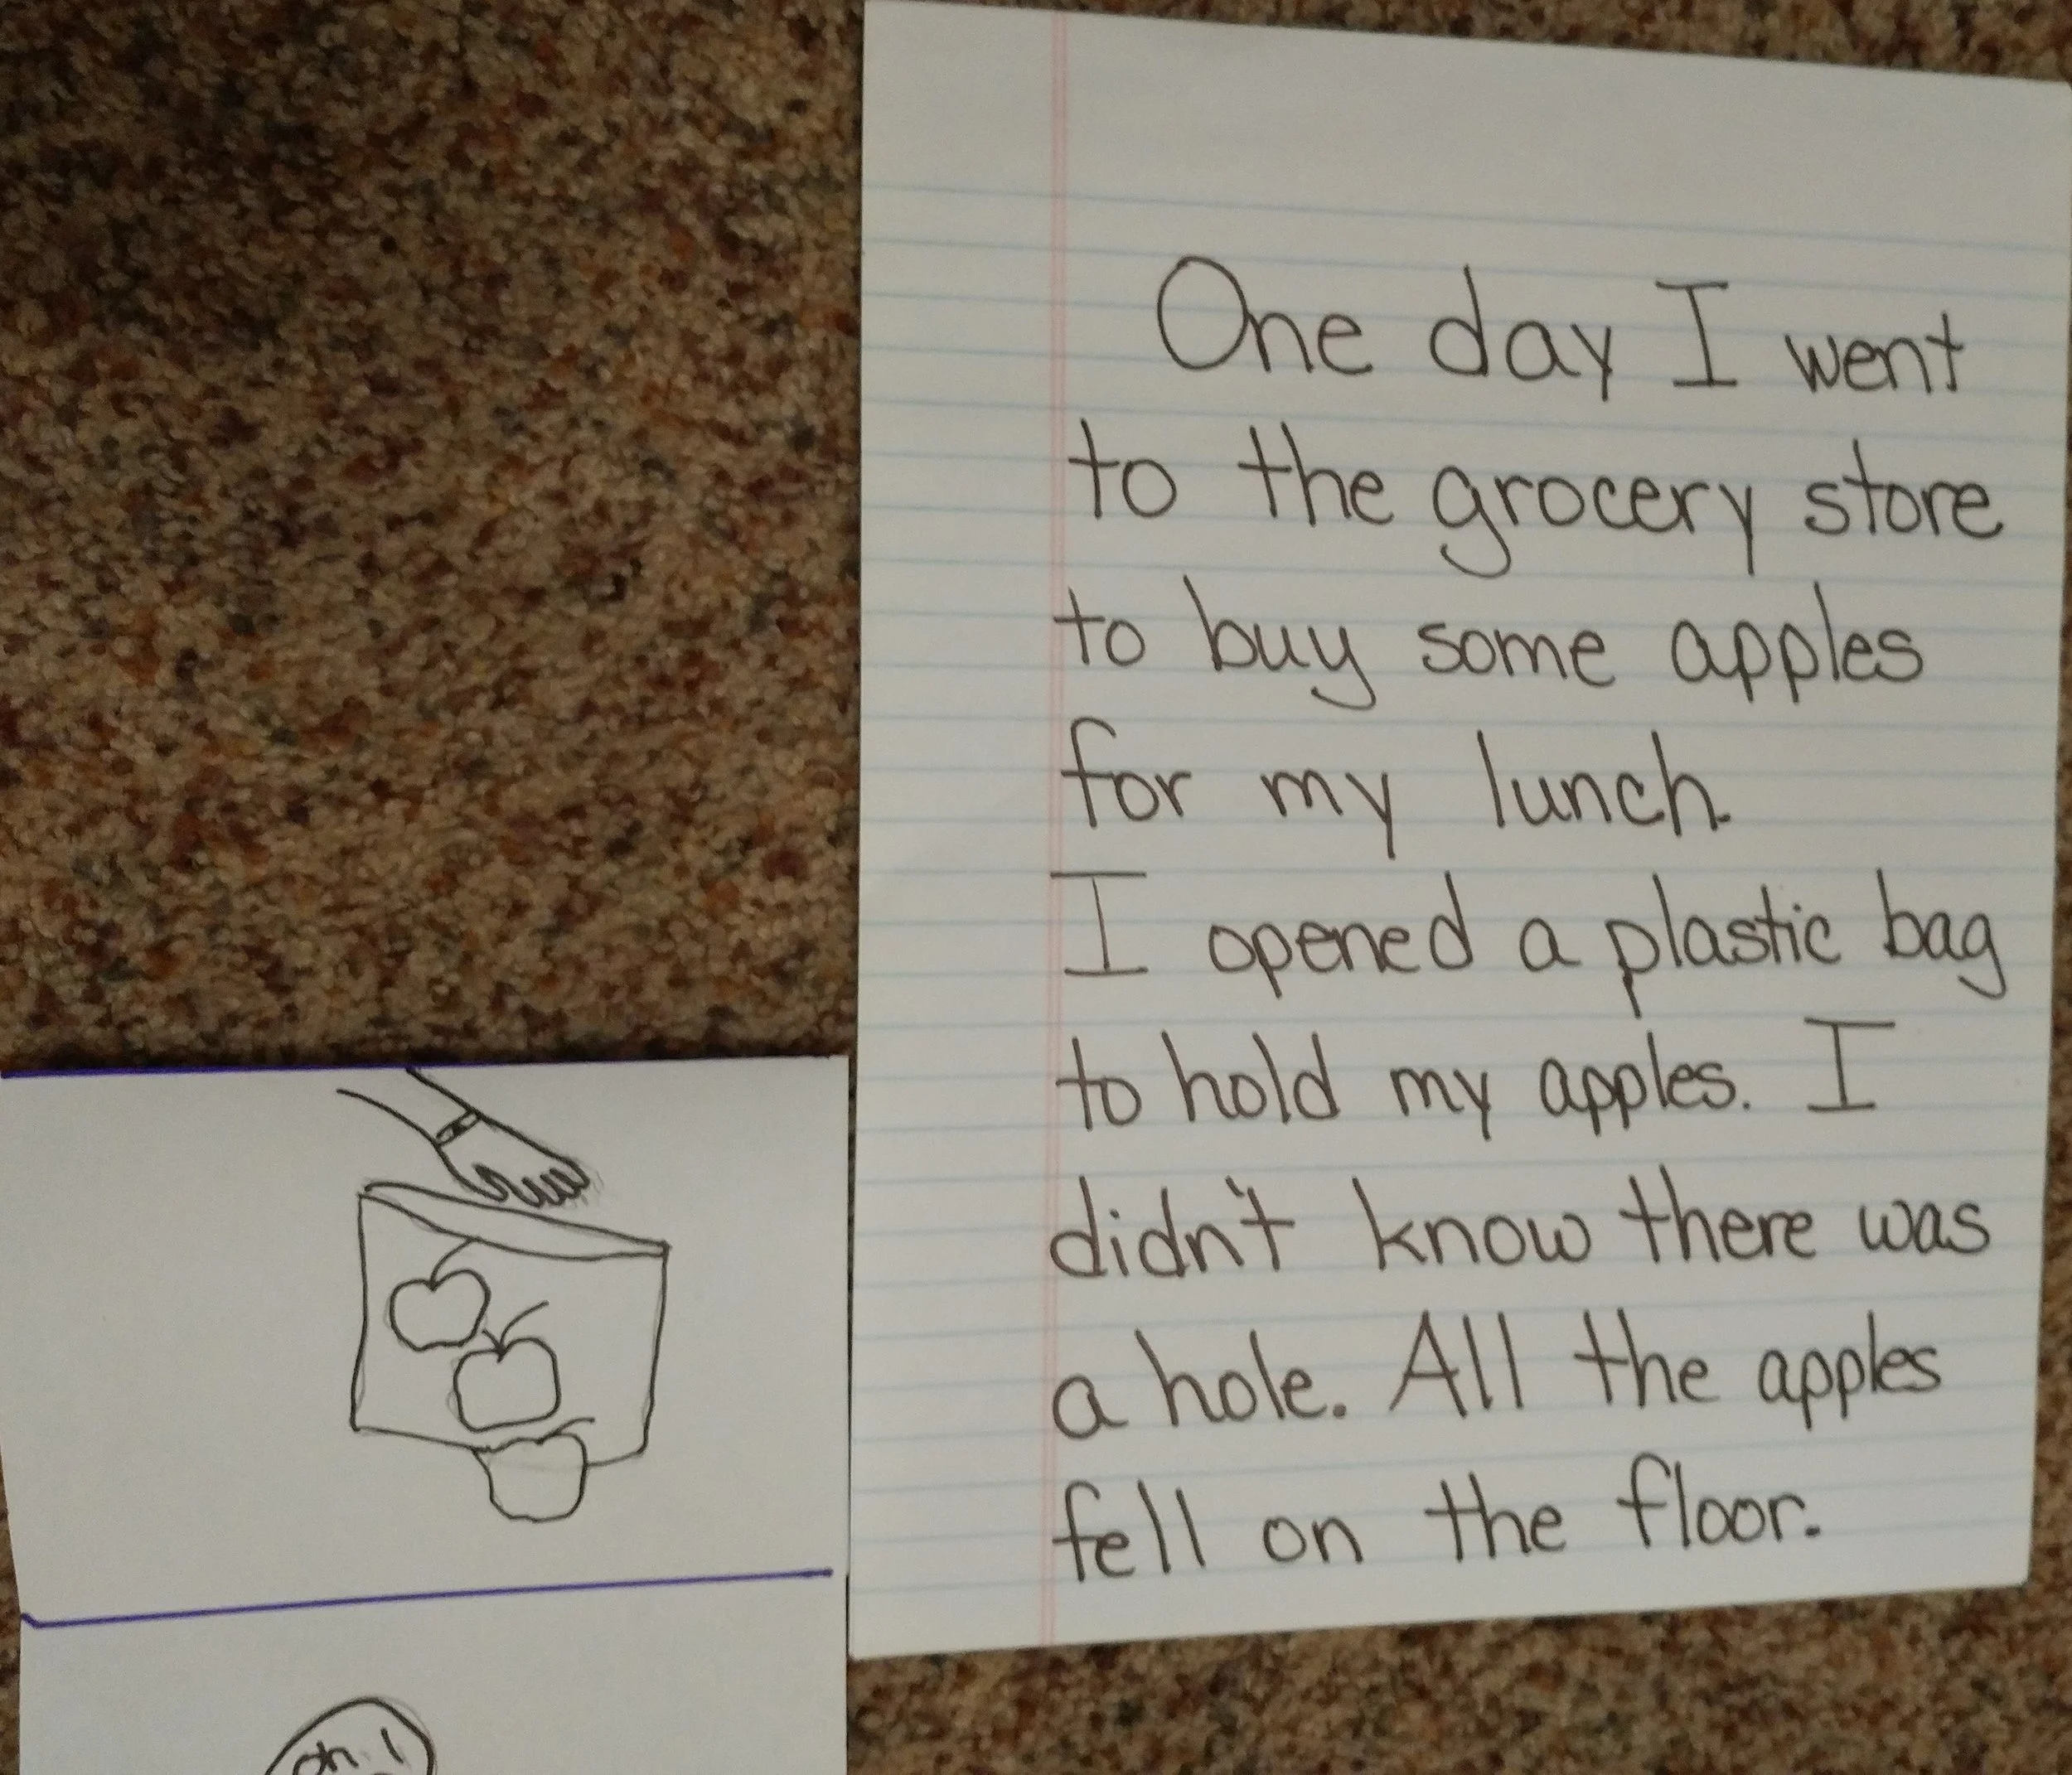 One day I went
to the grocery store
to buy some apples
for my lunch.
I opened a plastic bag
to hold my apples. I
didn't know there was
a hole. All the apples
fell on the floor.
oh!